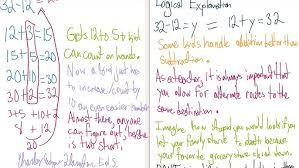 32-12 =
12+3=15
15+5=20
20+10=30
30+2=32
3+5+10+2
8 + 12
20
Gets 12 to 5 + kid
can count on hands.
Now a kid just has
to increase/count by
an even easier number.
Almost there, anyone
can figure out he/she
is two short.
Logical Explanation
32-12=y = 12+y=32
Some kids handle addition better than
Subtraction.
As a teacher, it is always important that
you allow for alternate routes to the
same destination.
Imagine how stupid you would look if you
let your family starve to death because
your favorite grocery store closed down.